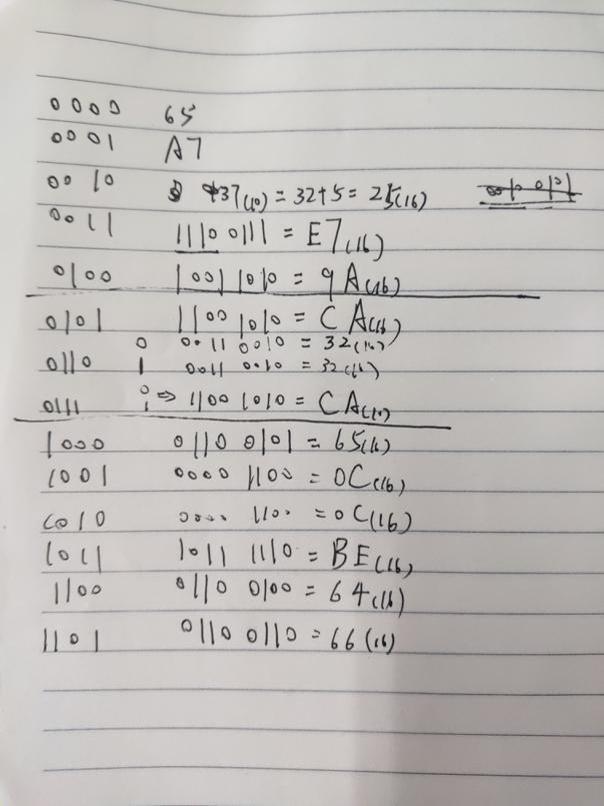 0000 65
0001 A7
0010 37(10) = 32+5 = 25(16)
0011 1110 0111 = E7(16)
0100 1001 1010 = 9A(16)
0101 1100 1010 = CA(16)
0 0011 0010 = 32(16)
0110 1 0011 0010 = 32(16)
0111 0 1 ⇒ 1100 1010 = CA(10)
1000 0110 0101 = 65(16)
1001 0000 1100 = 0C(16)
1010 0000 1100 = 0C(16)
1011 1011 1110 = BE(16)
1100 0110 0100 = 64(16)
1101 0110 0110 = 66(16)